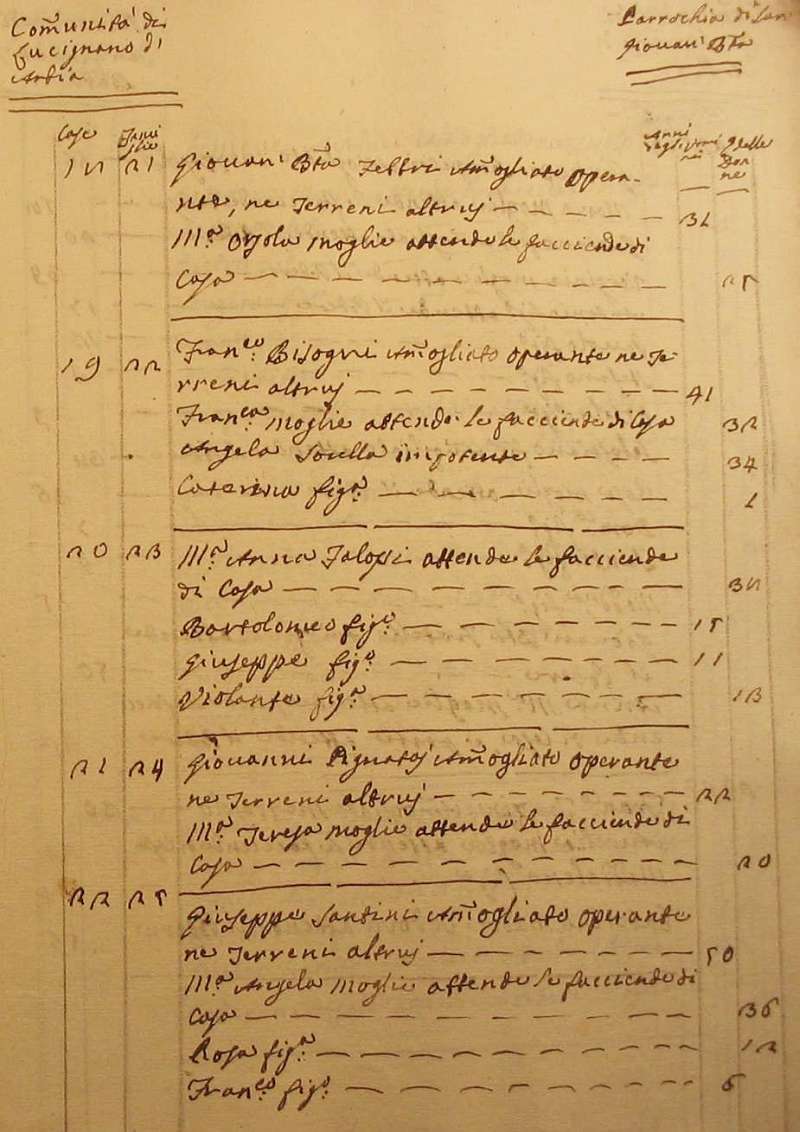 Comunità di
Lucignano di
Parrochia di San
Giovan̄i Btã
Case
Fami
glie
Anni
degl'uomi
ni
delle
Don
ne
18 21 Giovan̄i Btã Am̄ogliato opera-
nte, ne Terreni altruj — 31
M.ª Orsola moglie attende le facciende di
Casa — 25
19 22 Fran.co Bisogni Am̄ogliato operante ne Te
rreni altruj — 41
Fran.ca moglie attende le facciende di Casa 32
Angela Sorella impotente — 34
Caterina fig.ª — 1
20 23 M.ª Anna attende le facciende
di Casa — 38
Bartolomeo fig.º — 15
Giuseppe fig.º — 11
Violante fig.ª — 13
21 24 Giovanni Pignatej Am̄ogliato operante
ne Terreni altruj — 22
M.ª Teresa moglie attende le facciende di
Casa — 20
22 25 Giuseppe Santini Am̄ogliato operante
ne Terreni altruj — 50
M.ª Angela moglie attende le facciende di
Casa — 36
Rosa fig.ª — 12
Fran.co fig.º — 6